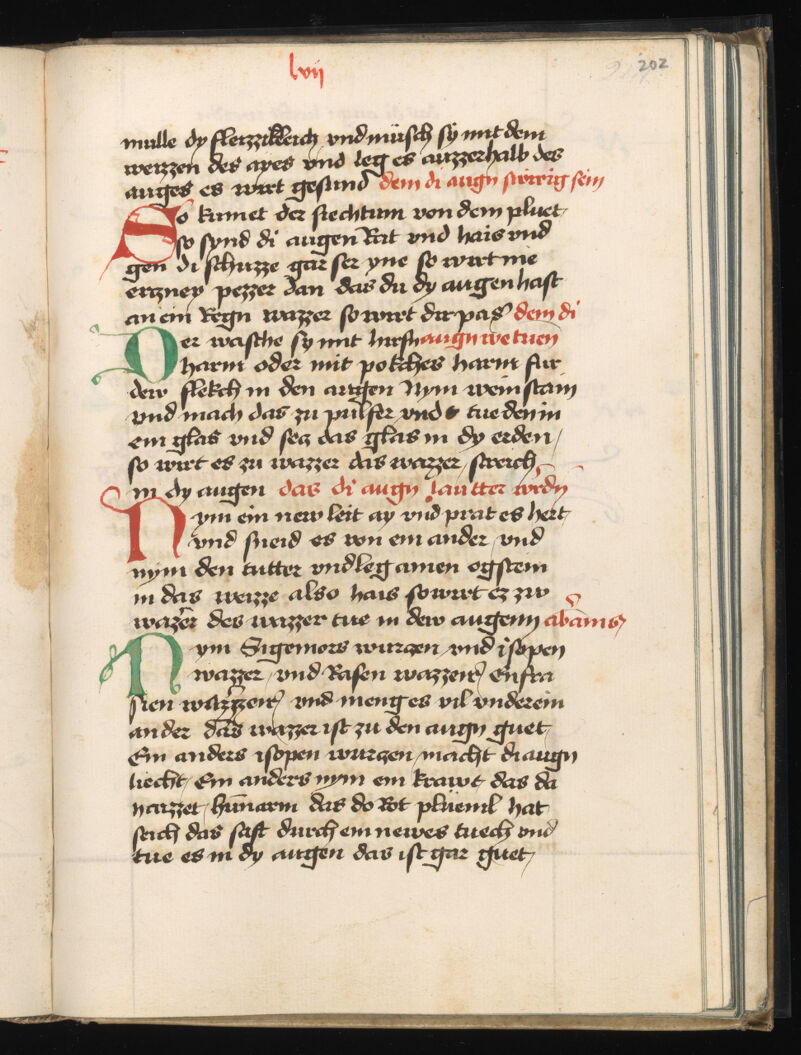 lvij
202
mulle dy fleizzikleich vnd müsch sy mit dem
weizzen des ayes vnd leg es auzzerhalb des
auges es wirt gesund dem di augn swirig sein
So kumet der siechtum von dem pluet
so synd di augen Rat vnd hais vnd
gen di schuzze gar ser yne so wirt nie
erczney pezzer dan das du dy augen hast
an ein Regn wazzer so wirt dir pas dem di
Der wasche sy mit hirsn augn we tuen
harm oder mit pokches harm fur
dew flekch in den augen Nym weinstain
vnd mach das zu pulfer vnd tue den in
ein glas vnd secz das glas in dy erden
so wirt es zu wazzer das wazzer streich
in dy augen das di augn lautter werdn
Nym ein new leit ay vnd prat es hert
vnd sneid es von ein ander vnd
nym den tutter vnd leg ainen ogstein
in das weizze also hais so wirt ez zw
wazer des wazzer tue in dew augenn
Nym Sigemors wurczen vnd ysopen
wazzer vnd Rasen wazzer enfra
sien wazzer vnd meng es vil vnderein
ander das wazzer ist zu den augn guet
Ein anders isopen wurczen macht di augn
liecht Ein anders nym ein krawt das da
haizzet hünarm das do Rot plueml hat
seich das saft durch ein newes tuech vnd
tue es in dy augen das ist gar guet